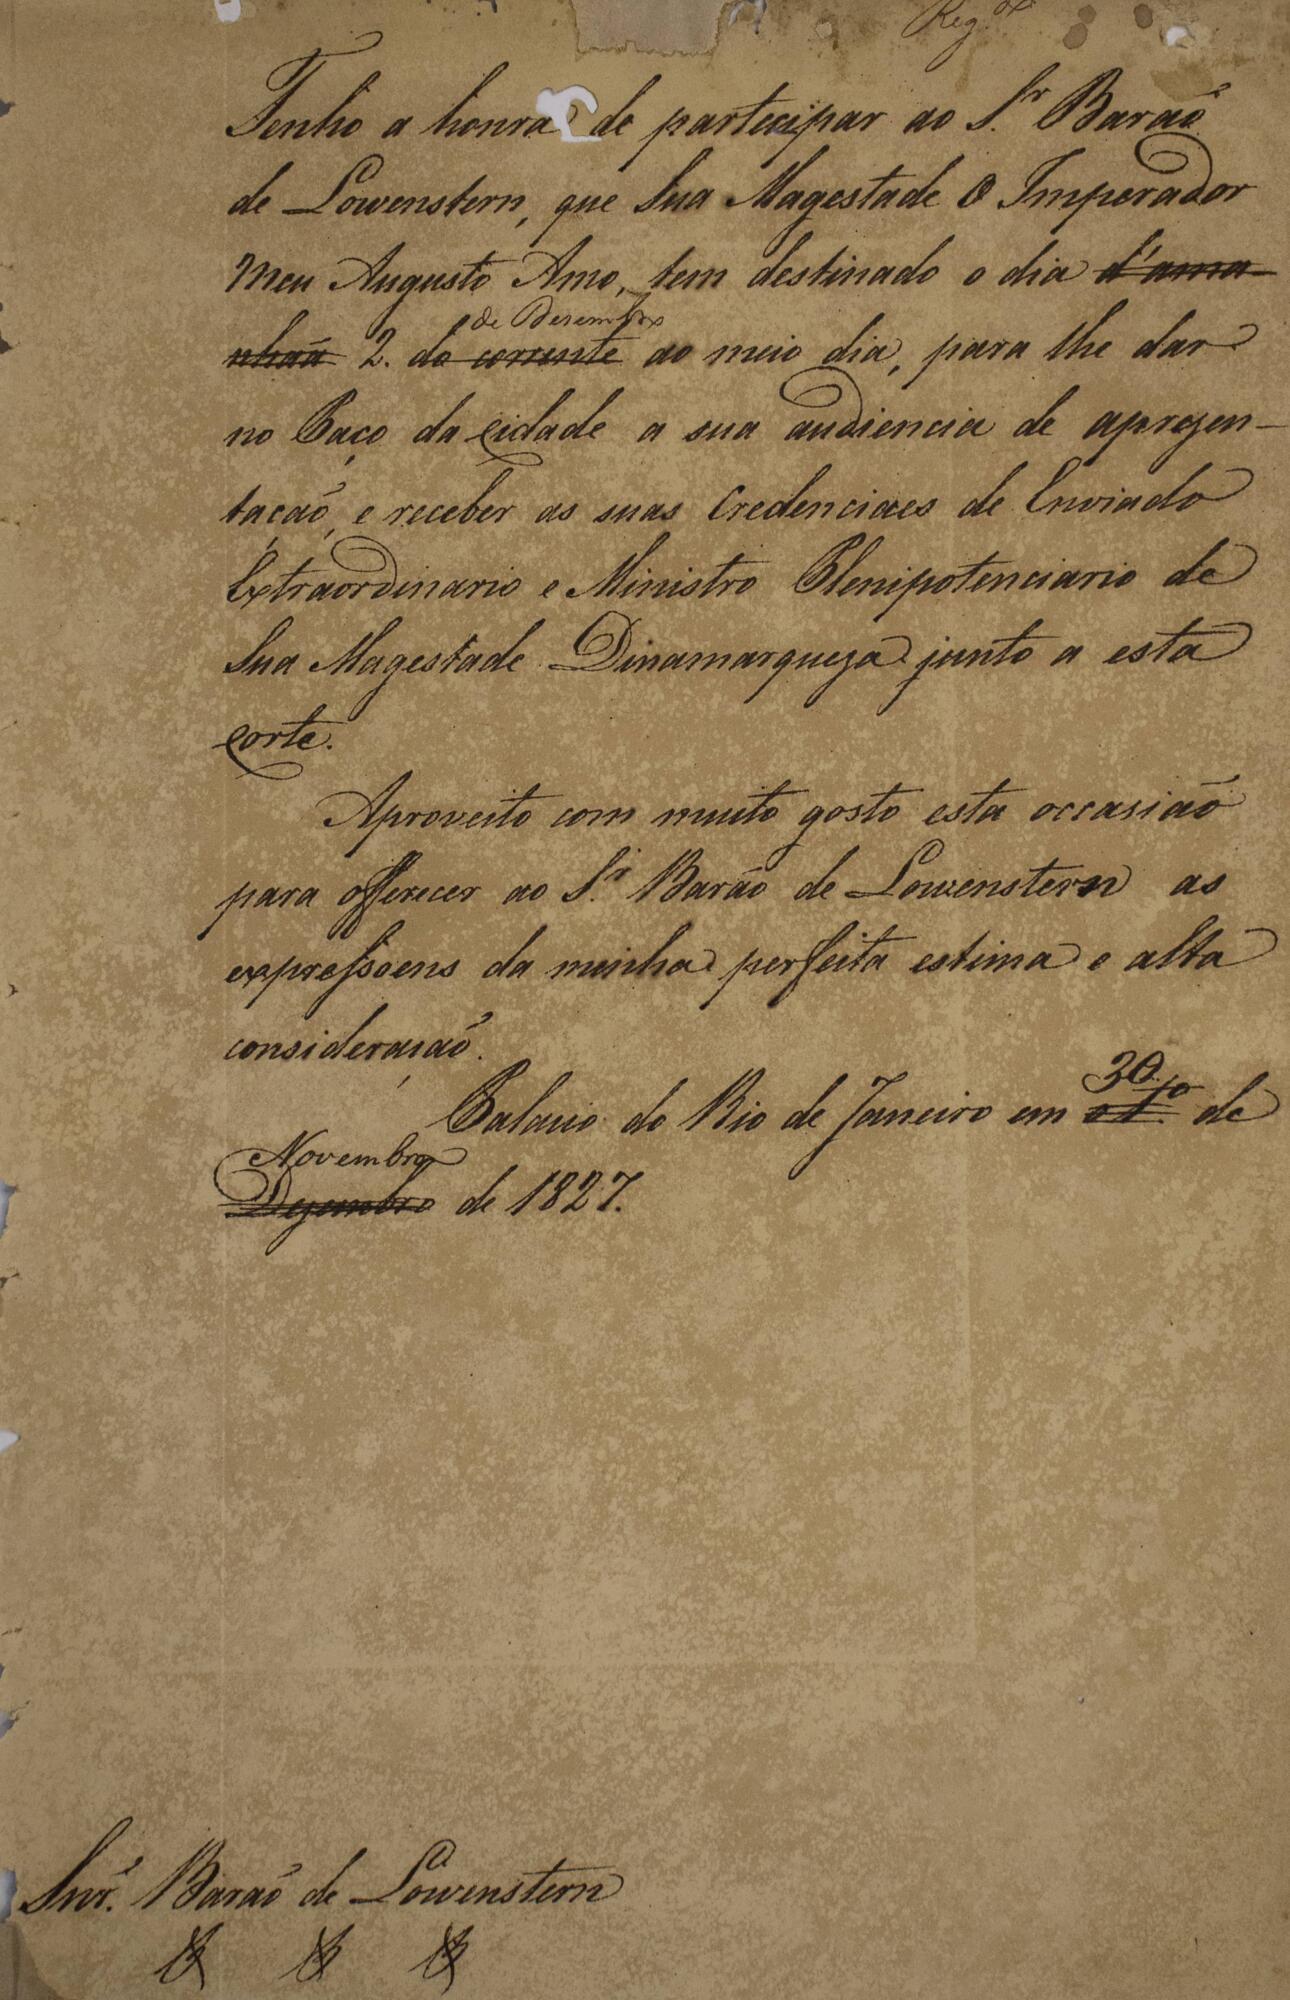 Reg.do
Tenho a honra de partecipar ao S.r Baraõ
de Lowenstern, que Sua Magestade O Imperador
Meu Augusto Amo, tem destinado o dia d'ama-
de Desembro
nhaã 2. do corrente ao meio dia, para lhe dar
no Paço da Cidade a sua audiencia de aprezen-
taçaõ, e receber as suas Credenciaes de Enviado
Extraordinario e Ministro Plenipotenciario de
Sua Magestade Dinamarqueza junto a esta
Corte.
Aproveito com muito gosto esta occasiaõ
para offerecer ao S.r Barão de Lowenstern as
expressoens da minha perfeita estima e alta
consideraçaõ.
30.
Palacio do Rio de Janeiro em o 1.º de
Novembro
Dezembro de 1827.
Snr. Baraõ de Lowenstern